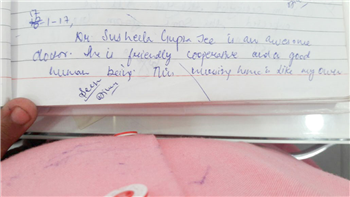 1-17,
Dr Susheela Gupta Jee is an awesome
doctor. She is friendly cooperative and a good
human being. This nursing home is like my own